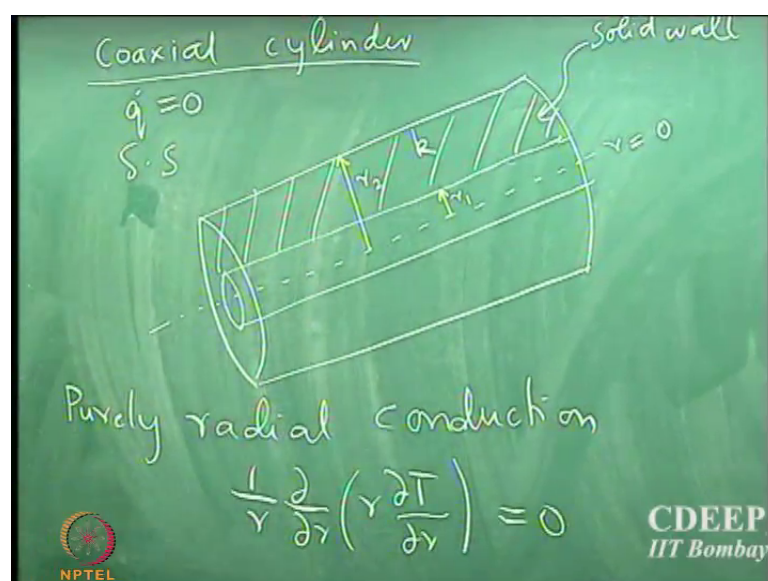 Coaxial cylinder
q̇ = 0
S.S
Solid wall
k
r = 0
r₂
r₁
Purely radial conduction
1/r ∂/∂r (r ∂T/∂r) = 0
CDEEP
IIT Bombay
NPTEL